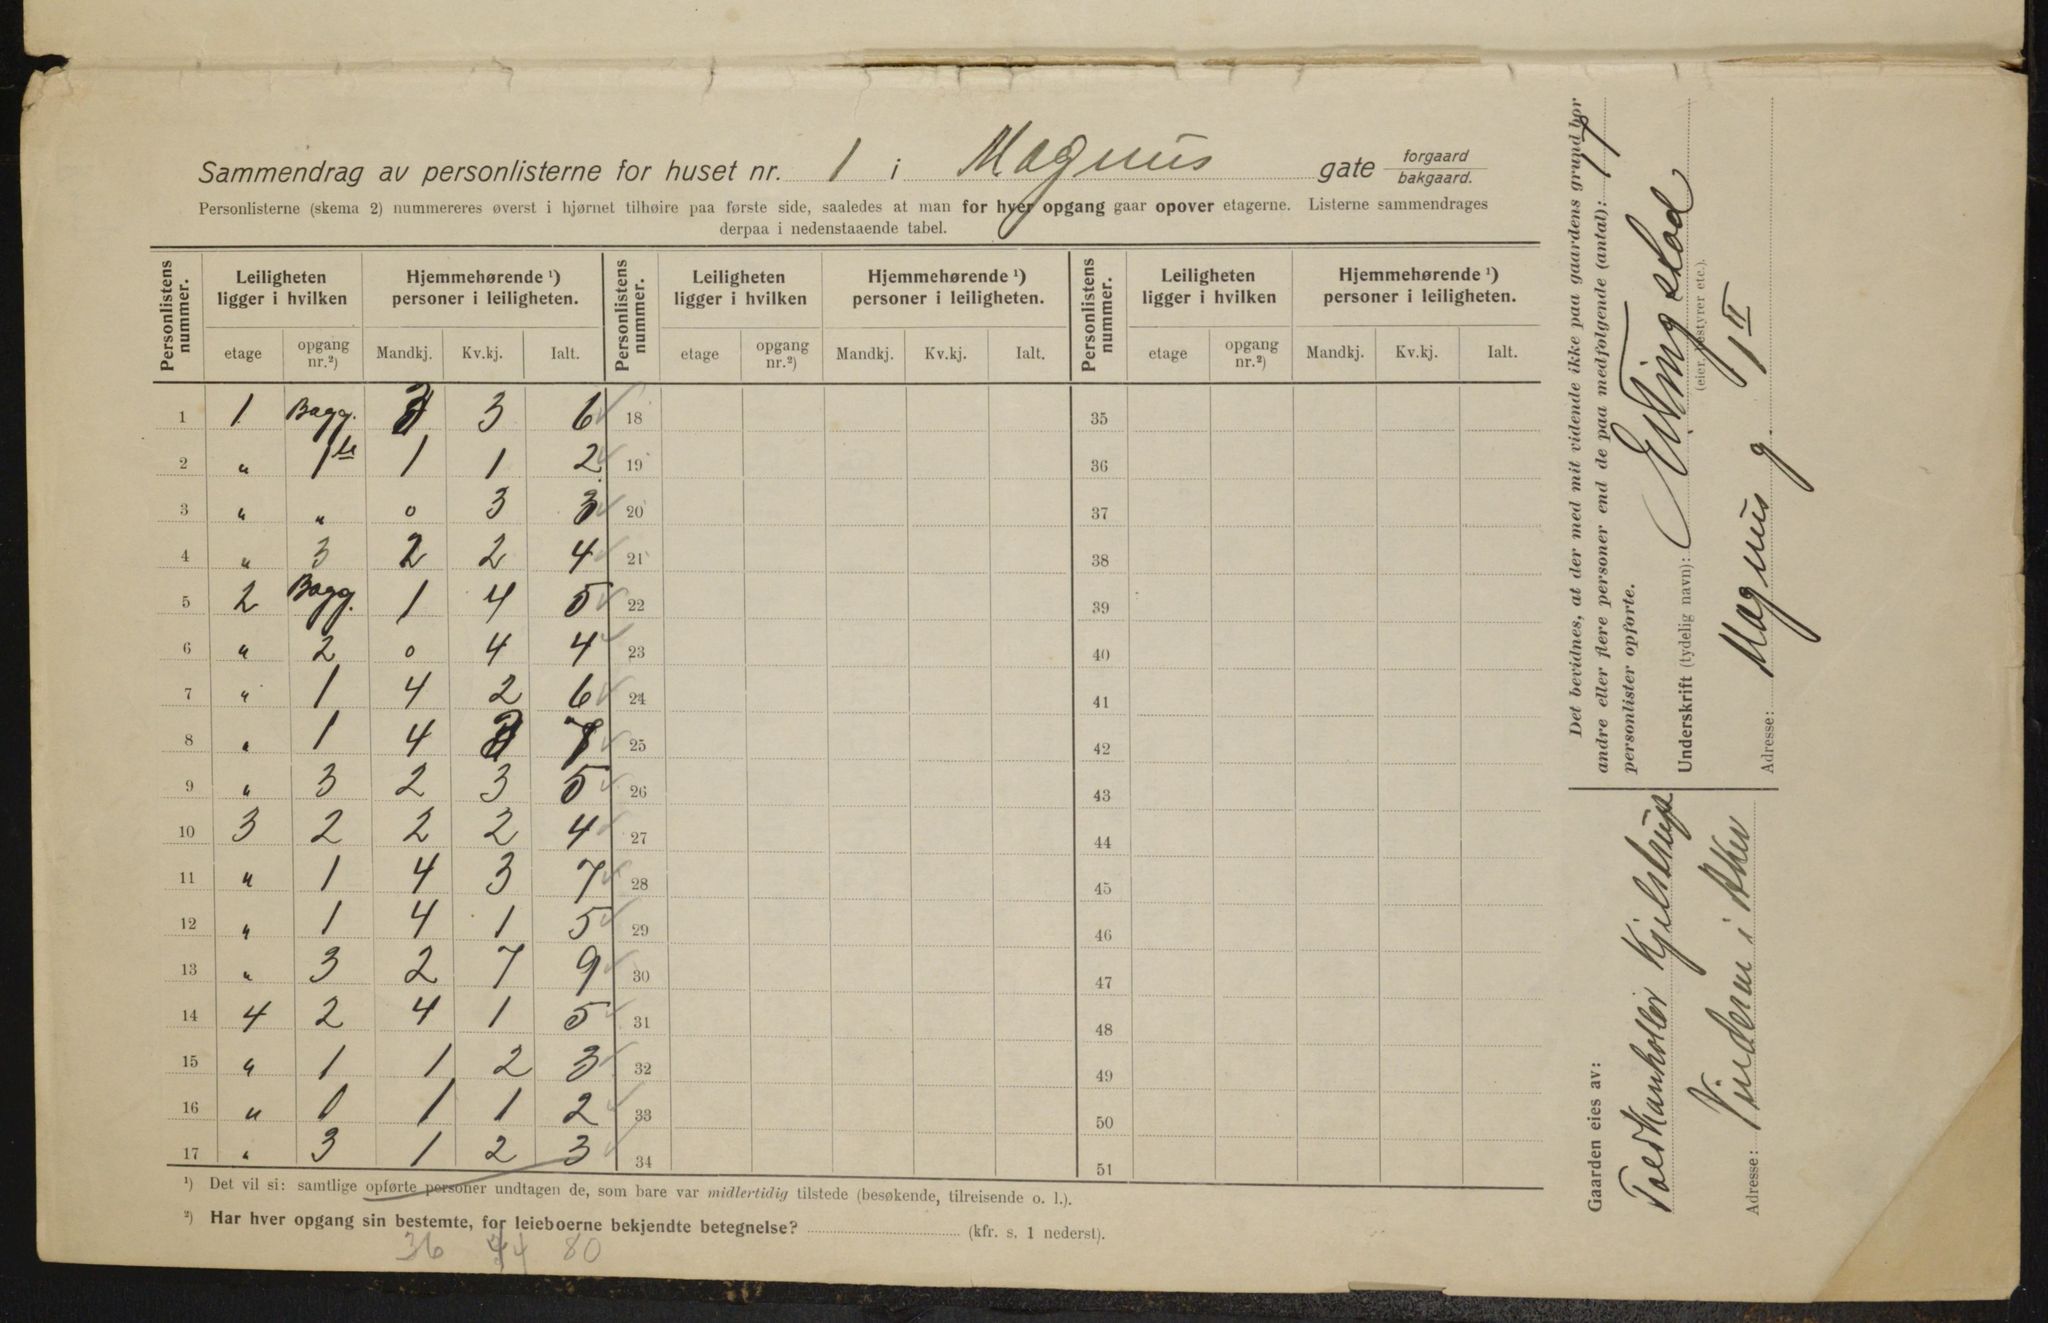 Sammendrag av personlisterne for huset nr. 1 i Magnus gate forgaard bakgaard.
Personlisterne (skema 2) nummereres øverst i hjørnet tilhøire paa første side, saaledes at man for hver opgang gaar opover etagerne. Listerne sammendrages
derpaa i nedenstaaende tabel.
Personlistens nummer. Leiligheten ligger i hvilken Hjemmehørende ¹) personer i leiligheten. Personlistens nummer. Leiligheten ligger i hvilken Hjemmehørende ¹) personer i leiligheten. Personlistens nummer. Leiligheten ligger i hvilken Hjemmehørende ¹) personer i leiligheten.
etage opgang nr.²) Mandkj. Kv.kj. Ialt. etage opgang nr.²) Mandkj. Kv.kj. Ialt. etage opgang nr.²) Mandkj. Kv.kj. Ialt.
1 1 Bagg. 3 3 6 18 35
2 " 1ste 1 1 2 19 36
3 " " 0 3 3 20 37
4 " 3 2 2 4 21 38
5 2 Bagg. 1 4 5 22 39
6 " 2 0 4 4 23 40
7 " 1 4 2 6 24 41
8 " 1 4 3 7 25 42
9 " 3 2 3 5 26 43
10 3 2 2 2 4 27 44
11 " 1 4 3 7 28 45
12 " 1 4 1 5 29 46
13 " 3 2 7 9 30 47
14 4 2 4 1 5 31 48
15 " 1 1 2 3 32 49
16 " 1 1 1 2 33 50
17 " 3 1 2 3 34 51
¹) Det vil si: samtlige opførte personer undtagen de, som bare var midlertidig tilstede (besøkende, tilreisende o. l.).
²) Har hver opgang sin bestemte, for leieboerne bekjendte betegnelse? (kfr. s. 1 nederst).
36 44 80
Det bevidnes, at der med mit vidende ikke paa gaardens grund bor
andre eller flere personer end de paa medfølgende (antal): 17
personlister opførte.
Underskrift (tydelig navn):
(eier, bestyrer etc.).
Adresse: Magnus g. 1 II
Gaarden eies av:
Kjelstrup
Adresse: Vinderen i Aker